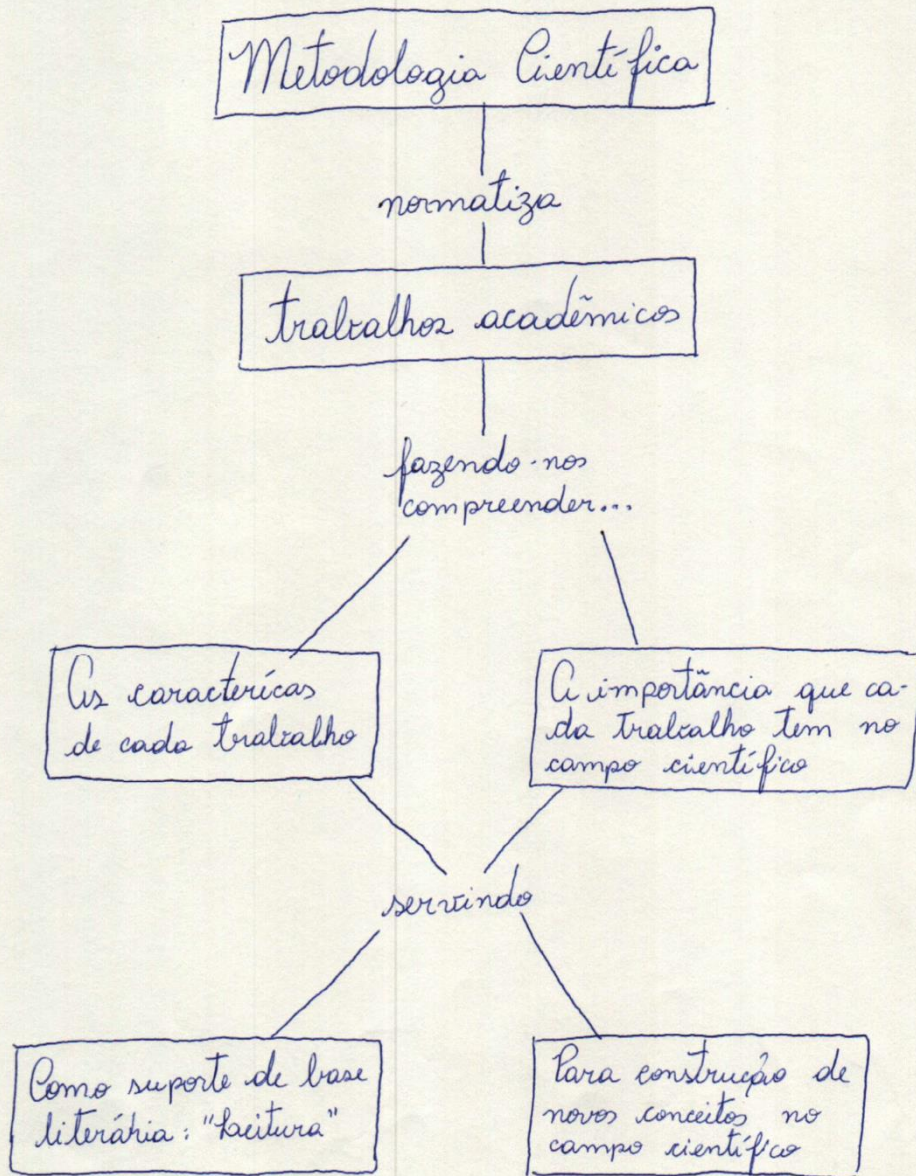 Metodologia Científica
normatiza
trabalhos acadêmicos
fazendo-nos
compreender...
As caracterícas
de cada trabalho
A importância que ca-
da trabalho tem no
campo científico
servindo
Como suporte de base
literáhia: "Leitura"
Para construção de
novos conceitos no
campo científico